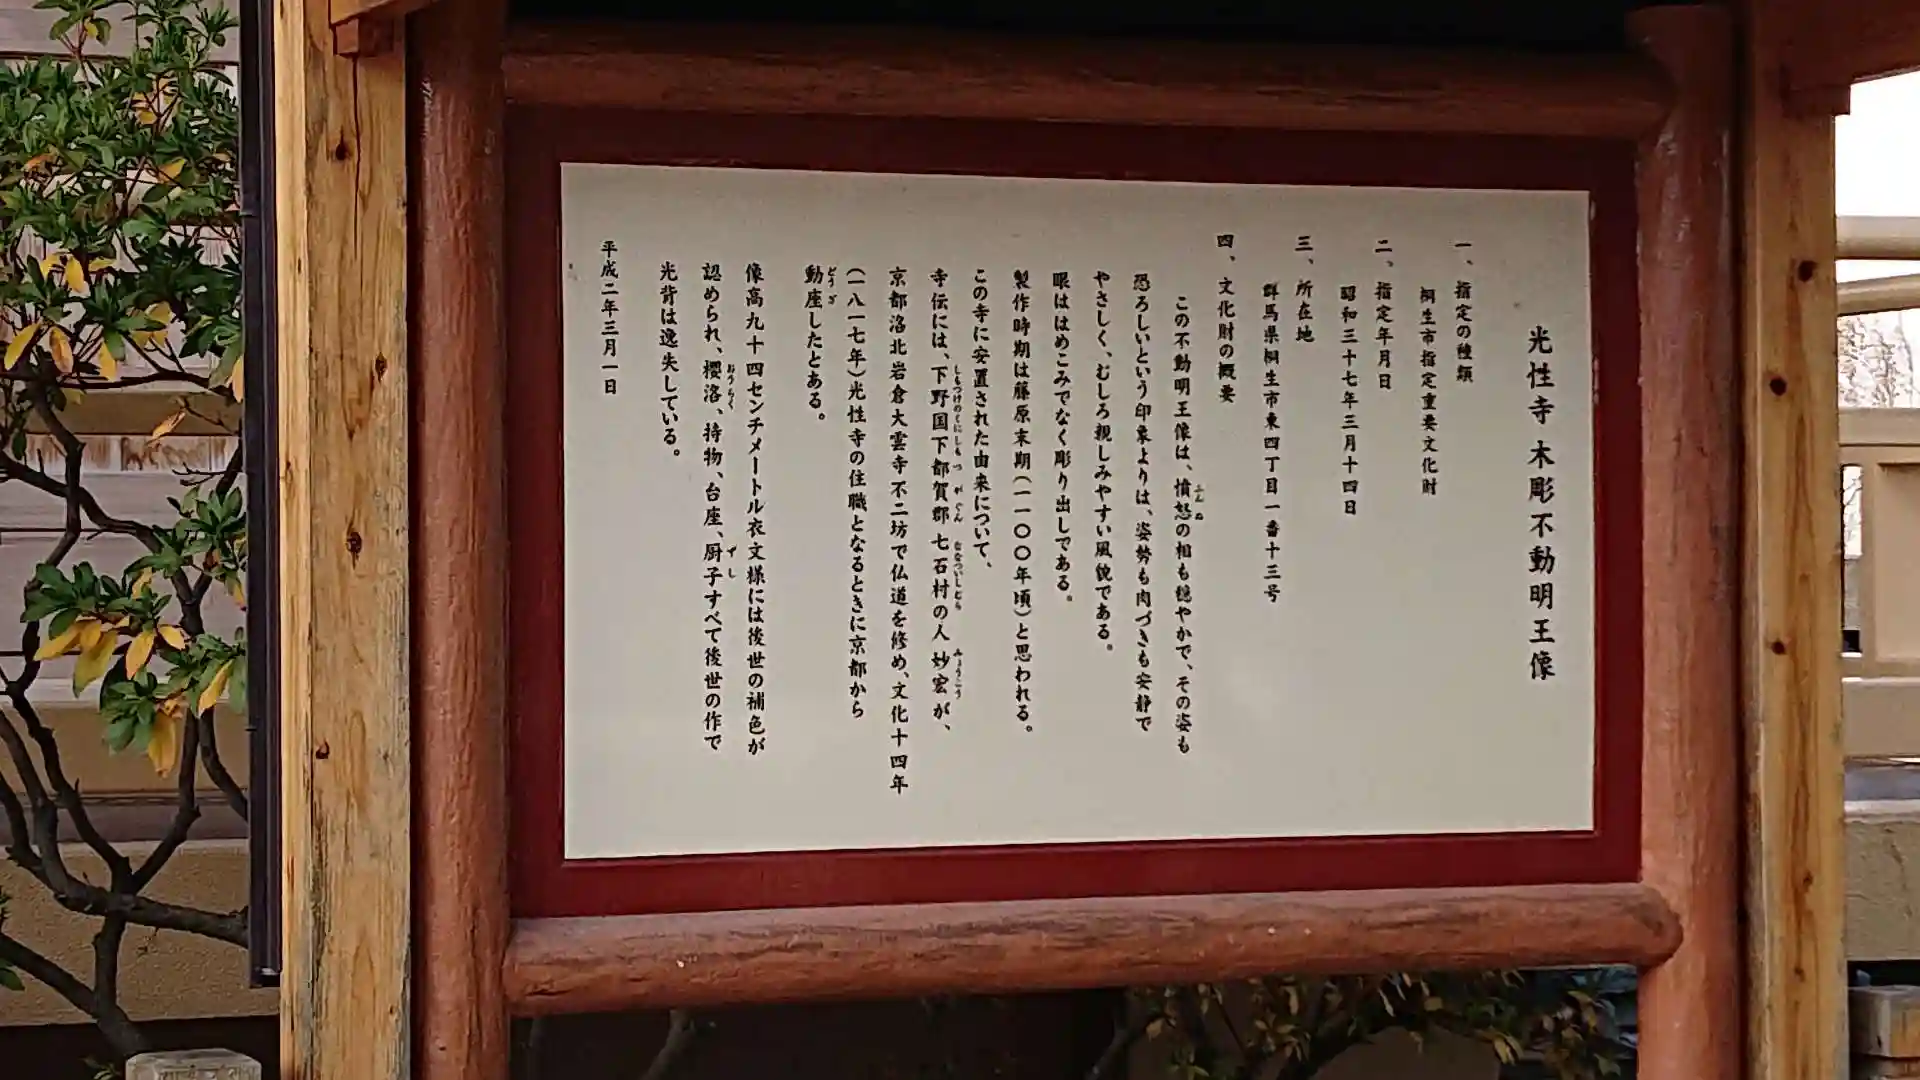 光性寺 木彫不動明王像
一、指定の種類
桐生市指定重要文化財
二、指定年月日
昭和三十七年三月十四日
三、所在地
群馬県桐生市東四丁目一番十三号
四、文化財の概要
この不動明王像は、憤怒の相も穏やかで、その姿も
恐ろしいという印象よりは、姿勢も肉づきも安静で
やさしく、むしろ親しみやすい風貌である。
眼ははめこみでなく彫り出しである。
製作時期は藤原末期(一一〇〇年頃)と思われる。
この寺に安置された由来について、
寺伝には、下野国下都賀郡 七石村の人 妙宏が、
京都洛北岩倉大雲寺不二坊で仏道を修め、文化十四年
(一八一七年)光性寺の住職となるときに京都から
動座したとある。
像高九十四センチメートル衣文様には後世の補色が
認められ、櫻洛、持物、台座、厨子すべて後世の作で
光背は逸失している。
平成二年三月一日